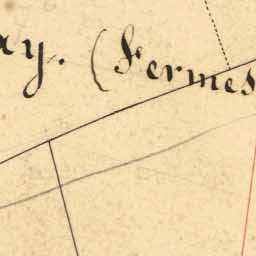 ay. (Fermes